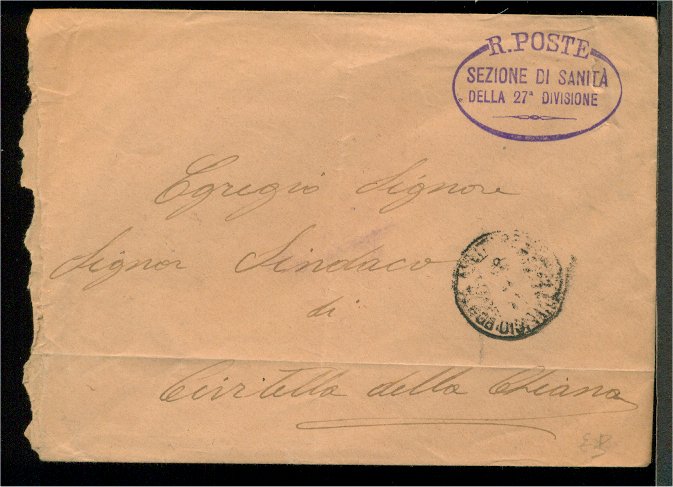 R. POSTE
SEZIONE DI SANITÀ
DELLA 27ª DIVISIONE
Egregio Signore
Signor Sindaco
di
Civitella della Chiana